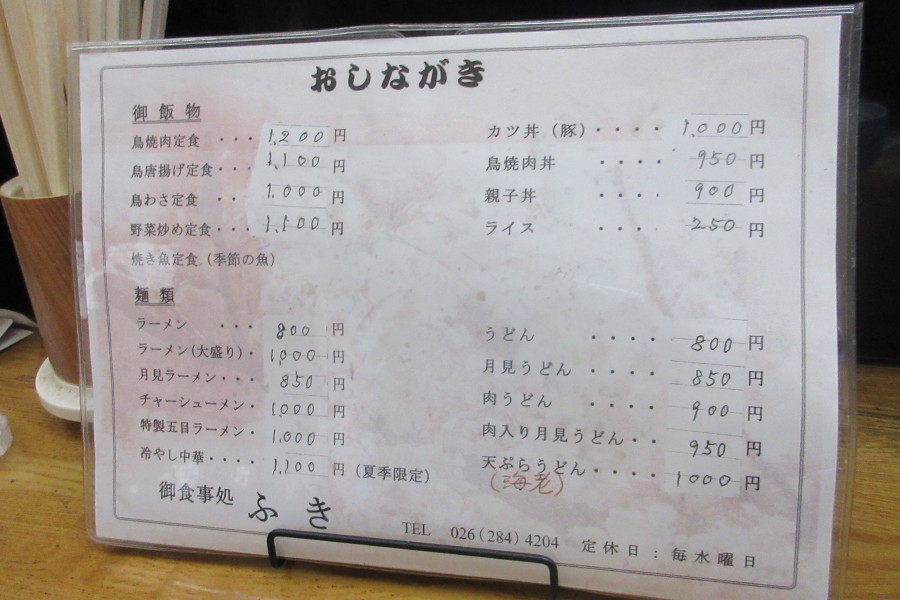 おしながき
御飯物
鳥焼肉定食 ・・・ 1,200円
鳥唐揚げ定食・・・ 1,100円
鳥わさ定食 ・・ 1,000円
野菜炒め定食・・ 1,100円
焼き魚定食（季節の魚）
カツ丼（豚）・・・・ 1,000円
鳥焼肉丼 ・・・・ 950円
親子丼 ・・・・ 900円
ライス ・・・・ 250円
麺類
ラーメン ・・・ 800円
ラーメン(大盛り)・ 1,000円
月見ラーメン・・・ 850円
チャーシューメン・ 1,000円
特製五目ラーメン・ 1,000円
冷やし中華・・・・ 1,100円（夏季限定）
うどん ・・・・ 800円
月見うどん ・・・・ 850円
肉うどん ・・・・ 900円
肉入り月見うどん・・ 950円
天ぷらうどん・・・・ 1000円
(海老)
御食事処 ふき
TEL 026(284)4204 定休日：毎水曜日